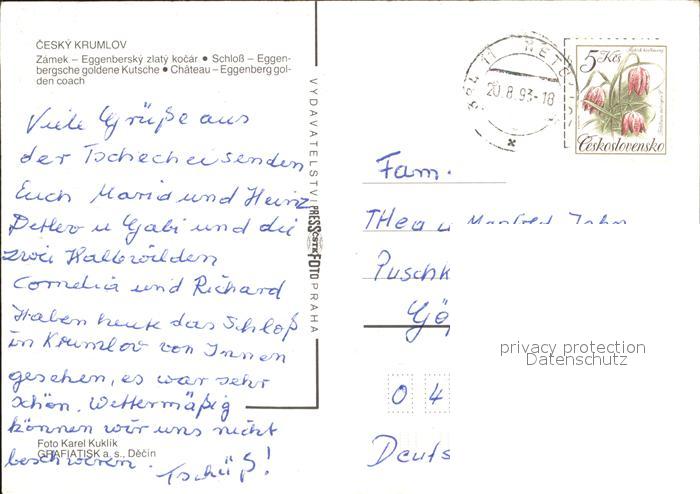 ČESKÝ KRUMLOV
Zámek – Eggenberský zlatý kočár • Schloß – Eggen-
bergsche goldene Kutsche • Château – Eggenberg gol-
den coach
Viele Grüße aus
der Tschechei senden
Euch Maria und Heinz
Detlev u Gabi und die
zwei Halbwilden
Cornelia und Richard
Haben heute das Schloß
in Krumlov von Innen
gesehen, es war sehr
schön. Wettermäßig
können wir uns nicht
beschweren.
Tschüß!
Foto Karel Kuklík
GRAFIATISK a. s., Děčín
VYDAVATELSTVÍ PRESSFOTO PRAHA
ČSTK
384 11 NETO
20.8.93-18
5 Kčs
Československo
Fam.
THea u Manfred
Puschk
Gö
privacy protection
Datenschutz
0 4
Deuts